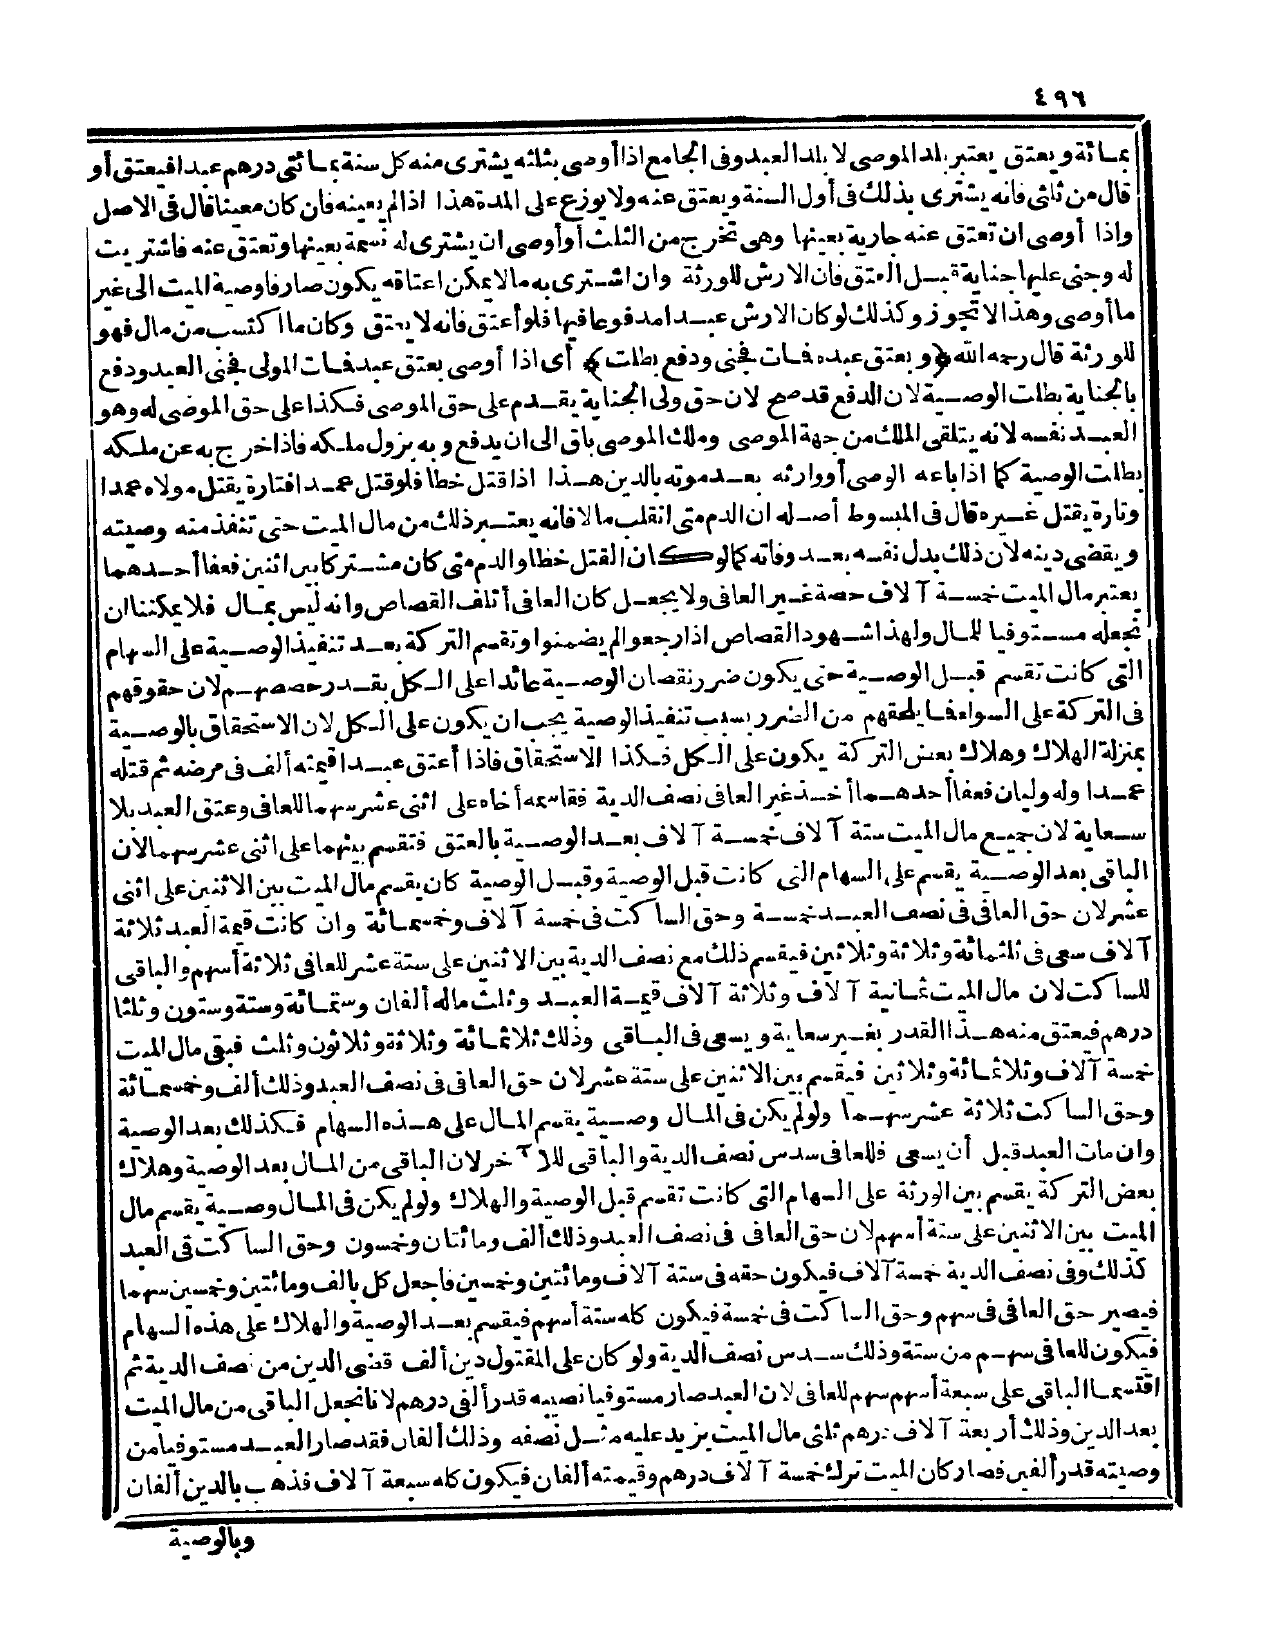 ٤٩٦
بمائة ويعتق يعتبر بلد الموصى لا بلد العبد وفى الجامع اذا أوصى بثلثه يشترى منه كل سنة بمائتى درهم عبدا فيعتق أو
قال من ثلثى فانه يشترى بذلك فى أول السنة ويعتق عنه ولا يوزع على المدة هذا اذا لم يعينه فان كان معينا قال فى الاصل
واذا أوصى ان تعتق عنه جارية بعينها وهى تخرج من الثلث أو أوصى ان يشترى له نسمة بعينها وتعتق عنه فاشتريت
له وجنى عليها جناية قبل العتق فان الارش للورثة وان اشترى به مالا يمكن اعتاقه يكون صارفا وصية الميت الى غير
ما أوصى وهذا لا تجوز وكذلك لو كان الارش عبدا مدفوعا فيها فلو أعتق فانه لا يعتق وكان ما اكتسب من مال فهو
للورثة قال رحمه الله ﴿وبعتق عبده فمات فجنى ودفع بطلت﴾ أى اذا أوصى بعتق عبد فمات المولى فجنى العبد ودفع
بالجناية بطلت الوصية لان الدفع قد صح لان حق ولى الجناية يقدم على حق الموصى فكذا على حق الموضى له وهو
العبد نفسه لانه يتلقى الملك من جهة الموصى وملك الموصى باق الى ان يدفع وبه يزول ملكه فاذا خرج به عن ملكه
بطلت الوصية كما اذا باعه الوصى أو وارثه بعد موته بالدين هذا اذا قتل خطا فلو قتل عمدا فتارة يقتل مولاه عمدا
وتارة يقتل غيره قال فى المبسوط أصله ان الدم متى انقلب مالا فانه يعتبر ذلك من مال الميت حتى تنفذ منه وصيته
ويقضى دينه لان ذلك بدل نفسه بعد وفاته كما لو كان القتل خطا والدم متى كان مشتركا بين اثنين فعفا أحدهما
يعتبر مال الميت خمسة آلاف حصة غير العافى ولا يجعل كان العافى أتلف القصاص وانه ليس بمال فلا يمكننا ان
نجعله مستوفيا للمال ولهذا شهود القصاص اذا رجعوا لم يضمنوا وتقسم التركة بعد تنفيذ الوصية على السهام
التى كانت تقسم قبل الوصية حتى يكون ضرر نقصان الوصية عائدا على الكل بقدر حصصهم لان حقوقهم
فى التركة على السواء فما يلحقهم من الضرر بسبب تنفيذ الوصية يجب ان يكون على الكل لان الاستحقاق بالوصية
بمنزلة الهلاك وهلاك بعض التركة يكون على الكل فكذا الاستحقاق فاذا أعتق عبدا قيمته ألف فى مرضه ثم قتله
عمدا وله وليان فعفا أحدهما أخذ غير العافى نصف الدية فقاسمه أخاه على اثنى عشر سهما للعافى وعتق العبد بلا
سعاية لان جميع مال الميت ستة آلاف خمسة آلاف بعد الوصية بالعتق فتقسم بينهما على اثنى عشر سهما لان
الباقى بعد الوصية يقسم على السهام التى كانت قبل الوصية وقبل الوصية كان يقسم مال الميت بين الاثنين على اثنى
عشر لان حق العافى فى نصف العبد خمسة وحق الساكت فى خمسة آلاف وخمسمائة وان كانت قيمة العبد ثلاثة
آلاف سعى فى ثلثمائة وثلاثة وثلاثين فيقسم ذلك مع نصف الدية بين الاثنين على ستة عشر للعافى ثلاثة أسهم والباقى
للساكت لان مال الميت ثمانية آلاف وثلاثة آلاف قيمة العبد وثلث ماله ألفان وستمائة وستة وستون وثلثا
درهم فيعتق منه هذا القدر بغير سعاية ويسعى فى الباقى وذلك ثلاثمائة وثلاثة وثلاثون وثلث فبقى مال الميت
خمسة آلاف وثلاثمائة وثلاثين فيقسم بين الاثنين على ستة عشر لان حق العافى فى نصف العبد وذلك ألف وخمسمائة
وحق الساكت ثلاثة عشر سهما ولو لم يكن فى المال وصية يقسم المال على هذه السهام فكذلك بعد الوصية
وان مات العبد قبل أن يسعى فللعافى سدس نصف الدية والباقى للآخر لان الباقى من المال بعد الوصية وهلاك
بعض التركة يقسم بين الورثة على السهام التى كانت تقسم قبل الوصية والهلاك ولو لم يكن فى المال وصية يقسم مال
الميت بين الاثنين على ستة أسهم لان حق العافى فى نصف العبد وذلك ألف ومائتان وخمسون وحق الساكت فى العبد
كذلك وفى نصف الدية خمسة آلاف فيكون حقه فى ستة آلاف ومائتين وخمسين فاجعل كل بالف ومائتين وخمسين سهما
فيصير حق العافى فى سهم وحق الساكت فى خمسة فيكون كله ستة أسهم فيقسم بعد الوصية والهلاك على هذه السهام
فيكون للعافى سهم من ستة وذلك سدس نصف الدية ولو كان على المقتول دين ألف قضى الدين من نصف الدية ثم
اقتسما الباقى على سبعة أسهم سهم للعافى لان العبد صار مستوفيا نصيبه قدر ألفى درهم لانا نجعل الباقى من مال الميت
بعد الدين وذلك أربعة آلاف درهم ثلثى مال الميت يزيد عليه مثل نصفه وذلك ألفان فقد صار العبد مستوفيا من
وصيته قدر ألفين فصار كان الميت ترك خمسة آلاف درهم وقيمته ألفان فيكون كله سبعة آلاف فذهب بالدين ألفان
وبالوصية